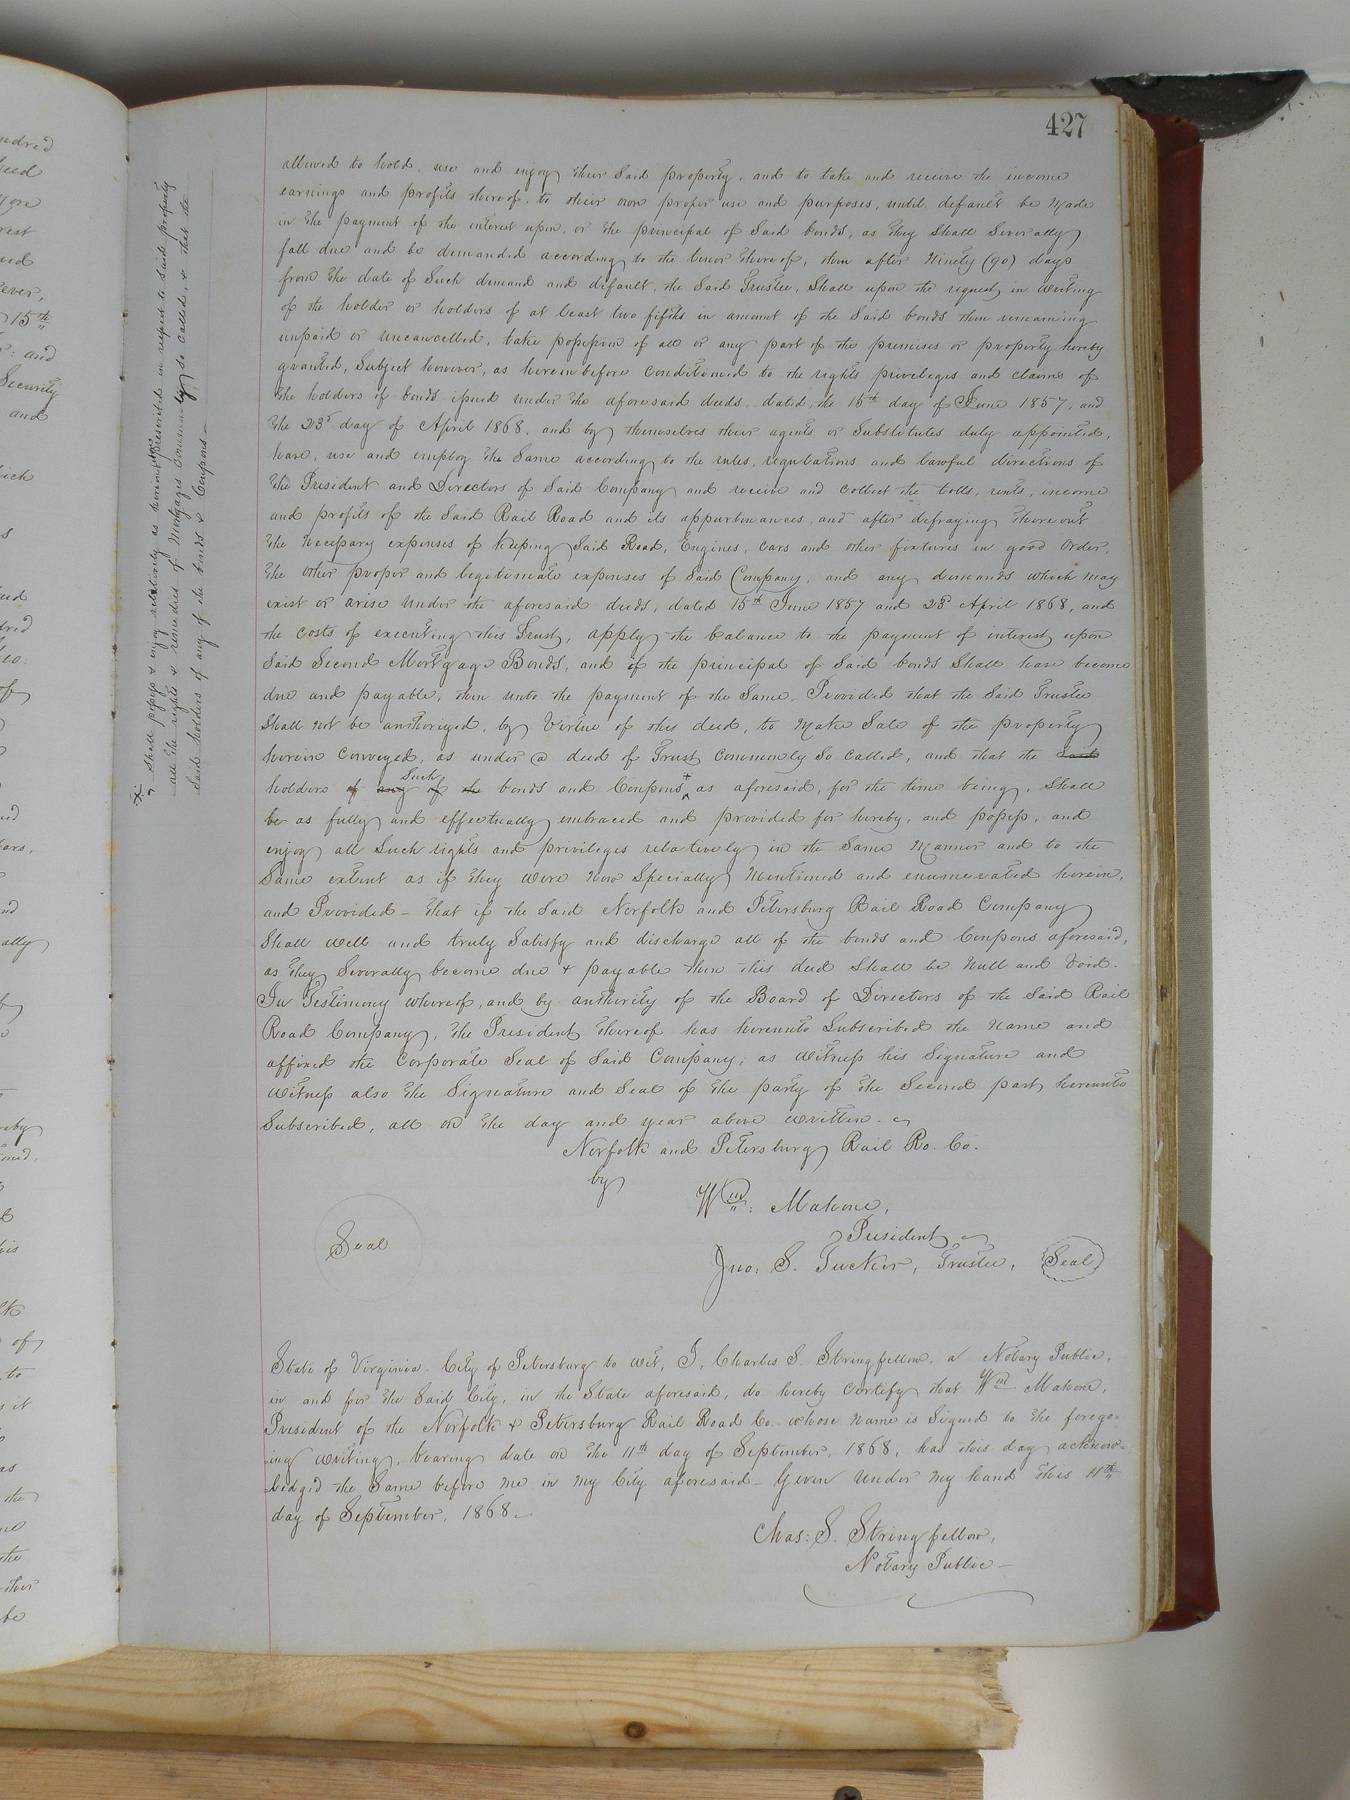 427
allowed to hold, use and enjoy their Said property, and to take and receive the income
earnings and profits thereof, to their own proper use and purposes, until default be Made
in the payment of the interest upon, or the principal of Said bonds, as they Shall Severally
fall due and be demanded according to the tenor thereof, then after Ninety (90) days
from the date of Such demand and default, the Said Trustee, Shall upon the request in writing
of the holder or holders of at least two fifths in amount of the Said bonds then remaining
unpaid or uncancelled, take possession of all or any part of the premises or property hereby
granted, Subject however, as herein before Conditioned to the rights privileges and claims of
the holders of bonds issued under the aforesaid deeds, dated, the 15th day of June 1857, and
the 23d day of April 1868, and by themselves their agents or Substitutes duly appointed,
have, use and employ the Same according to the rules, regulations and lawful directions of
the President and Directors of Said Company and receive and collect the tolls, rents, income
and profits of the Said Rail Road and its appurtenances, and after defraying thereout
the Necessary expenses of Keeping Said Road, Engines, Cars and other fixtures in good Order,
the other proper and legitimate expenses of Said Company, and any demands which may
exist or arise under the aforesaid deeds, dated 15th June 1857 and 23d April 1868, and
the costs of executing this Trust, apply the balance to the payment of interest upon
Said Second Mortgage Bonds, and if the principal of Said bonds Shall have become
due and payable, then unto the payment of the Same_ Provided that the Said Trustee
Shall not be authorized, by Virtue of this deed, to Make Sale of the property
herein Conveyed, as under a deed of Trust Commonly So Called, and that the Said
Such
holders of any of the bonds and Coupons + as aforesaid, for the time being, Shall
be as fully and effectually embraced and provided for hereby, and possess, and
enjoy all Such rights and privileges relatively in the Same Manner and to the
Same extent as if they were Now Specially Mentioned and enumerated herein,
and Provided_ that if the Said Norfolk and Petersburg Rail Road Company
Shall well and truly Satisfy and discharge all of the bonds and Coupons aforesaid,
as they Severally become due & payable then this deed Shall be Null and Void.
In Testimony whereof, and by authority of the Board of Directors of the Said Rail
Road Company, the President thereof has hereunto Subscribed the Name and
affixed the Corporate Seal of Said Company, as witness his Signature and
witness also the Signature and Seal of the party of the Second part hereunto
Subscribed, all on the day and year above written.
Norfolk and Petersburg Rail Ro. Co.
by
Wm: Mahone,
President
Seal
Jno: S. Tucker, Trustee, Seal
State of Virginia. City of Petersburg to wit, I, Charles S. Stringfellow, a Notary Public,
in and for the Said City, in the State aforesaid, do hereby certify that Wm Mahone,
President of the Norfolk & Petersburg Rail Road Co. whose Name is Signed to the forego-
ing writing, bearing date on the 11th day of September, 1868, has this day acknow-
ledged the Same before Me in My City aforesaid_ Given under My hand this 11th
day of September, 1868._
Chas: S. Stringfellow,
Notary Public_
+ Shall possess & enjoy relatively as herein prescribed in respect to Said property
all the rights & remedies of Mortgages Commonly So Called, & that the
Said holders of any of the bonds & Coupons_
undred
ever,
15th
and
Security
and